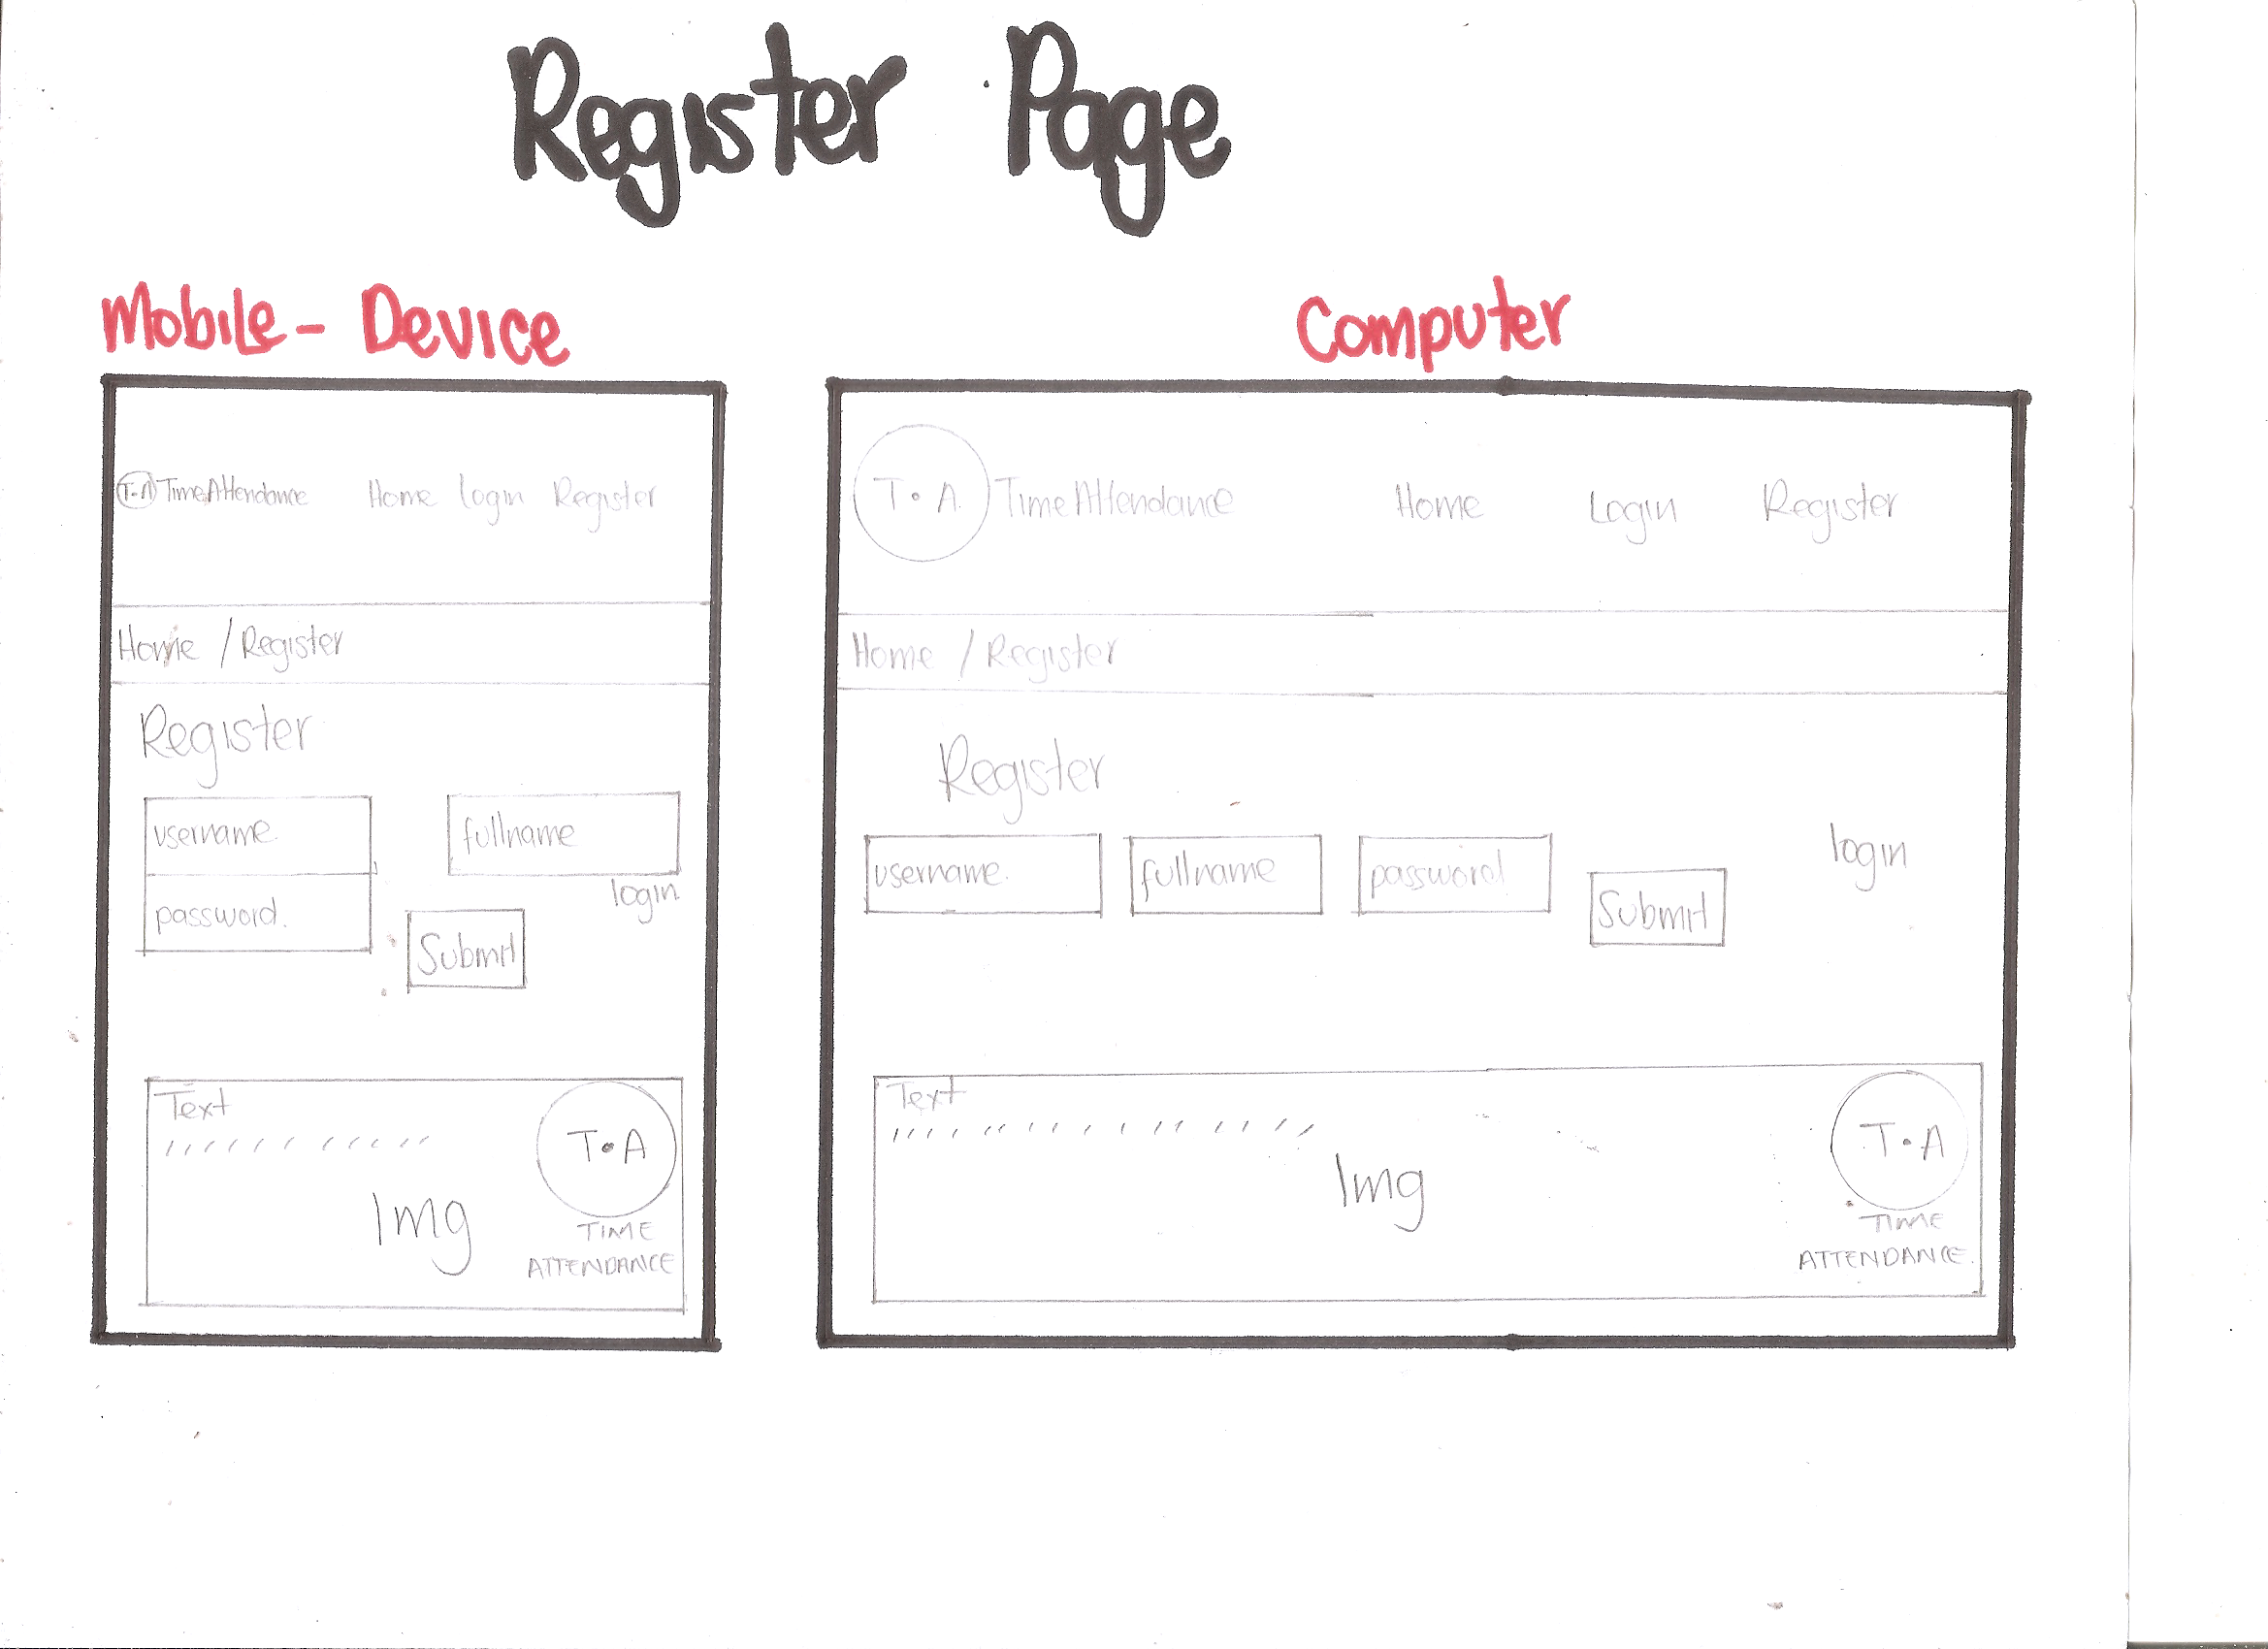 Register Page
Mobile - Device
T.A TimeAttendance Home login Register
Home / Register
Register
username.
fullname
password.
login
Submit
Text
Img
T.A
TIME
ATTENDANCE
Computer
T.A. TimeAttendance Home Login Register
Home / Register
Register
username.
fullname
password
Submit
login
Text
Img
T.A
TIME
ATTENDANCE.